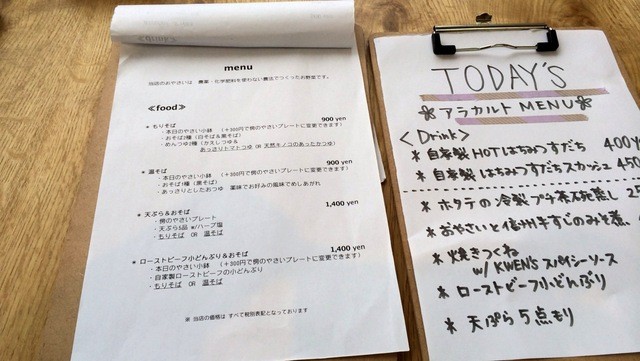 menu
当店のおやさいは 農薬・化学肥料を使わない農法でつくったお野菜です。
≪food≫
＊ もりそば 900 yen
・本日のやさい小鉢 （＋300円で僕のやさいプレートに変更できます）
・おそば2種（白そば＆黒そば）
・めんつゆ2種（カえしつゆ＆
あっさりトマトつゆ OR 天然キノコのあったかつゆ）
＊ 温そば 900 yen
・本日のやさい小鉢 （＋300円で僕のやさいプレートに変更できます）
・おそば1種（黒そば）
・あっさりとしたおつゆ 薬味でお好みの風味でめしあがれ
＊ 天ぷら＆おそば 1,400 yen
・僕のやさいプレート
・天ぷら5品 w/ハーブ塩
・もりそば OR 温そば
＊ ローストビーフ小どんぶり＆おそば 1,400 yen
・本日のやさい小鉢 （＋300円で僕のやさいプレートに変更できます）
・自家製ローストビーフの小どんぶり
・もりそば OR 温そば
※ 当店の価格は すべて税別表記となっております
TODAY'S
アラカルト MENU
<Drink>
＊ 自家製HOTはちみつすだち 400
＊ 自家製はちみつすだちスカッシュ 450
＊ ホタテの冷製プチ茶わん蒸し
＊ おやさいと信州牛すじのみそ煮
＊ 焼きつくね
w/ KWEN'S スパイシーソース
＊ ローストビーフ小どんぶり
＊ 天ぷら5点もり